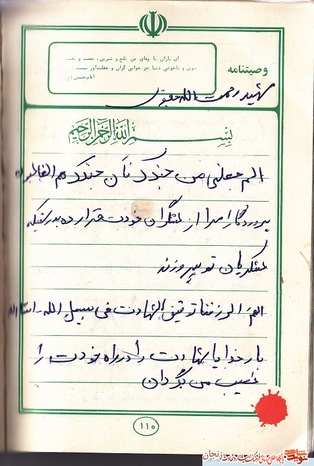 وصیتنامه
ای یاران با وفای من تلخ و شیرین، نعمت و نقمت
خوبی و ناخوبی دنیا جز خوابی گران و غفلت‌آور نیست
امام حسین (ع)
شهید رحمت الله
بسم الله الرحمن الرحیم
الهم جعلنی من جندک فأن جندک هم الغالبون
پروردگارا مرا از لشگریان خودت قرار ده بدرستیکه
لشگریان تو پیروزند
الهم الرزقنا توفیق الشهادت فی سبیل الله
بار خدایا شهادت را در راه خودت را
نصیب من بگردان
۱۱۰
زنجان